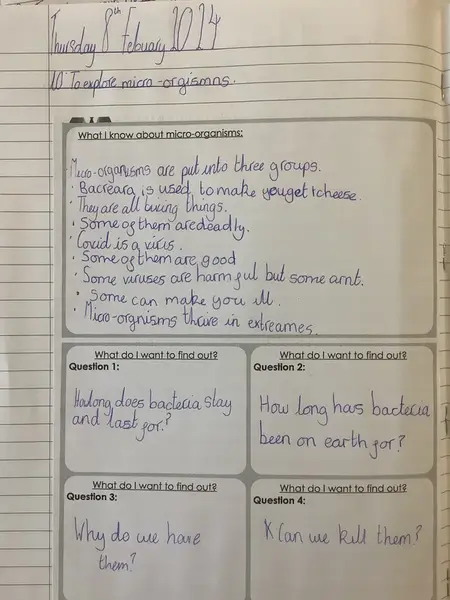 Thursday 8th Febuary 2024
LO To explore micro-orgismns.
What I know about micro-organisms:
Micro-organisms are put into three groups.
· Bacreara is used to make youget + cheese.
· They are all living things.
· Some of them are deadly.
· Covid is a viris.
· Some of them are good
· Some viruses are harmful but some arnt.
· Some can make you ill.
· Micro-orgnisms thrive in extreames.
What do I want to find out?
Question 1:
Howlong does bacteria stay
and last for?
What do I want to find out?
Question 2:
How long has bacteria
been on earth for?
What do I want to find out?
Question 3:
Why do we have
them?
What do I want to find out?
Question 4:
Can we kill them?